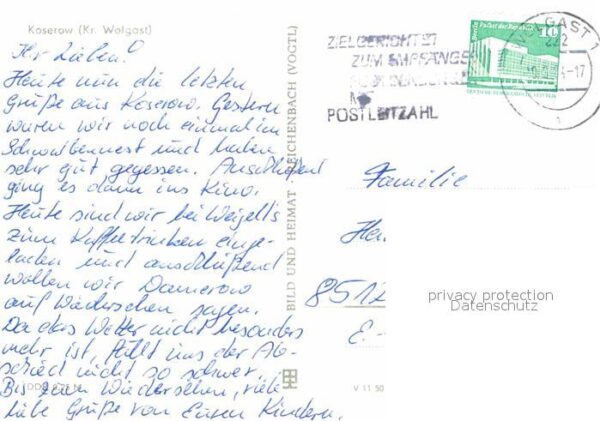 Koserow (Kr. Wolgast)
Ihr Lieben!
Heute nun die letzten
Grüße aus Koserow. Gestern
waren wir noch einmal im
Schwalbennest und haben
sehr gut gegessen. Anschließend
ging es dann ins Kino.
Heute sind wir bei Weigelt's
zum Kaffeetrinken einge-
laden und anschließend
wollen wir Damerow
auf Wiedersehen sagen.
Da das Wetter nicht besonders
mehr ist, fällt uns der Ab-
schied nicht so schwer.
Bis zum Wiedersehen, viele
liebe Grüße von Euren Kindern.
BILD UND HEIMAT REICHENBACH (VOGTL)
V 11 50
ZIELGERICHTET
ZUM EMPFÄNGER
POSTLEITZAHL
WOLGAST 1
222
-17
Berlin, Palast der Republik
10
Familie
8512
privacy protection
Datenschutz